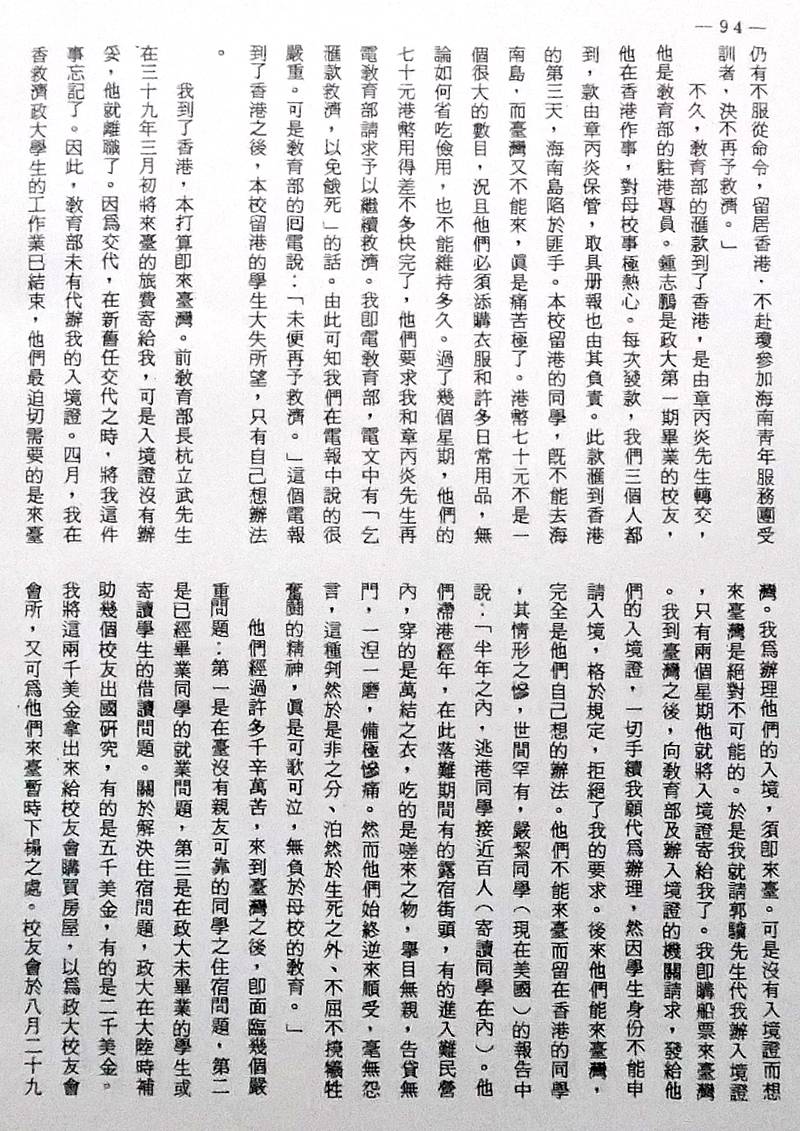 —94—
仍有不服從命令，留居香港．不赴瓊參加海南靑年服務團受
訓者，決不再予救濟。」
不久，敎育部的滙款到了香港，是由章丙炎先生轉交，
他是敎育部的駐港專員。鍾志鵬是政大第一期畢業的校友，
他在香港作事，對母校事極熱心。每次發款，我們三個人都
到，款由章丙炎保管，取具册報也由其負責。此款匯到香港
的第三天，海南島陷於匪手。本校留港的同學，旣不能去海
南島，而臺灣又不能來，眞是痛苦極了。港幣七十元不是一
個很大的數目，況且他們必須添購衣服和許多日常用品，無
論如何省吃儉用，也不能維持多久。過了幾個星期，他們的
七十元港幣用得差不多快完了，他們要求我和章丙炎先生再
電敎育部請求予以繼續救濟。我卽電敎育部，電文中有「乞
滙款救濟，以免餓死」的話。由此可知我們在電報中說的很
嚴重。可是敎育部的回電說：「未便再予救濟。」這個電報
到了香港之後，本校留港的學生大失所望，只有自己想辦法
。
我到了香港，本打算卽來臺灣。前敎育部長杭立武先生
在三十九年三月初將來臺的旅費寄給我，可是入境證沒有辦
妥，他就離職了。因爲交代，在新舊任交代之時，將我這件
事忘記了。因此，敎育部未有代辦我的入境證。四月，我在
香救濟政大學生的工作業已結束，他們最迫切需要的是來臺
灣。我爲辦理他們的入境，須卽來臺。可是沒有入境證而想
來臺灣是絕對不可能的。於是我就請郭驥先生代我辦入境證
，只有兩個星期他就將入境證寄給我了。我卽購船票來臺灣
。我到臺灣之後，向敎育部及辦入境證的機關請求，發給他
們的入境證，一切手續我願代爲辦理，然因學生身份不能申
請入境，格於規定，拒絕了我的要求。後來他們能來臺灣，
完全是他們自己想的辦法。他們不能來臺而留在香港的同學
，其情形之慘，世間罕有，嚴絜同學（現在美國）的報告中
說：「半年之內，逃港同學接近百人（寄讀同學在內）。他
們滯港經年，在此落難期間有的露宿街頭，有的進入難民營
內，穿的是萬結之衣，吃的是嗟來之物，舉目無親，告貸無
門，一涅一磨，備極慘痛。然而他們始終逆來順受，毫無怨
言，這種判然於是非之分、泊然於生死之外、不屈不撓犧牲
奮鬪的精神，眞是可歌可泣，無負於母校的敎育。」
他們經過許多千辛萬苦，來到臺灣之後，卽面臨幾個嚴
重問題：第一是在臺沒有親友可靠的同學之住宿問題，第二
是已經畢業同學的就業問題，第三是在政大未畢業的學生或
寄讀學生的借讀問題。關於解決住宿問題，政大在大陸時補
助幾個校友出國硏究，有的是五千美金，有的是二千美金。
我將這兩千美金拿出來給校友會購買房屋，以爲政大校友會
會所，又可爲他們來臺暫時下榻之處。校友會於八月二十九